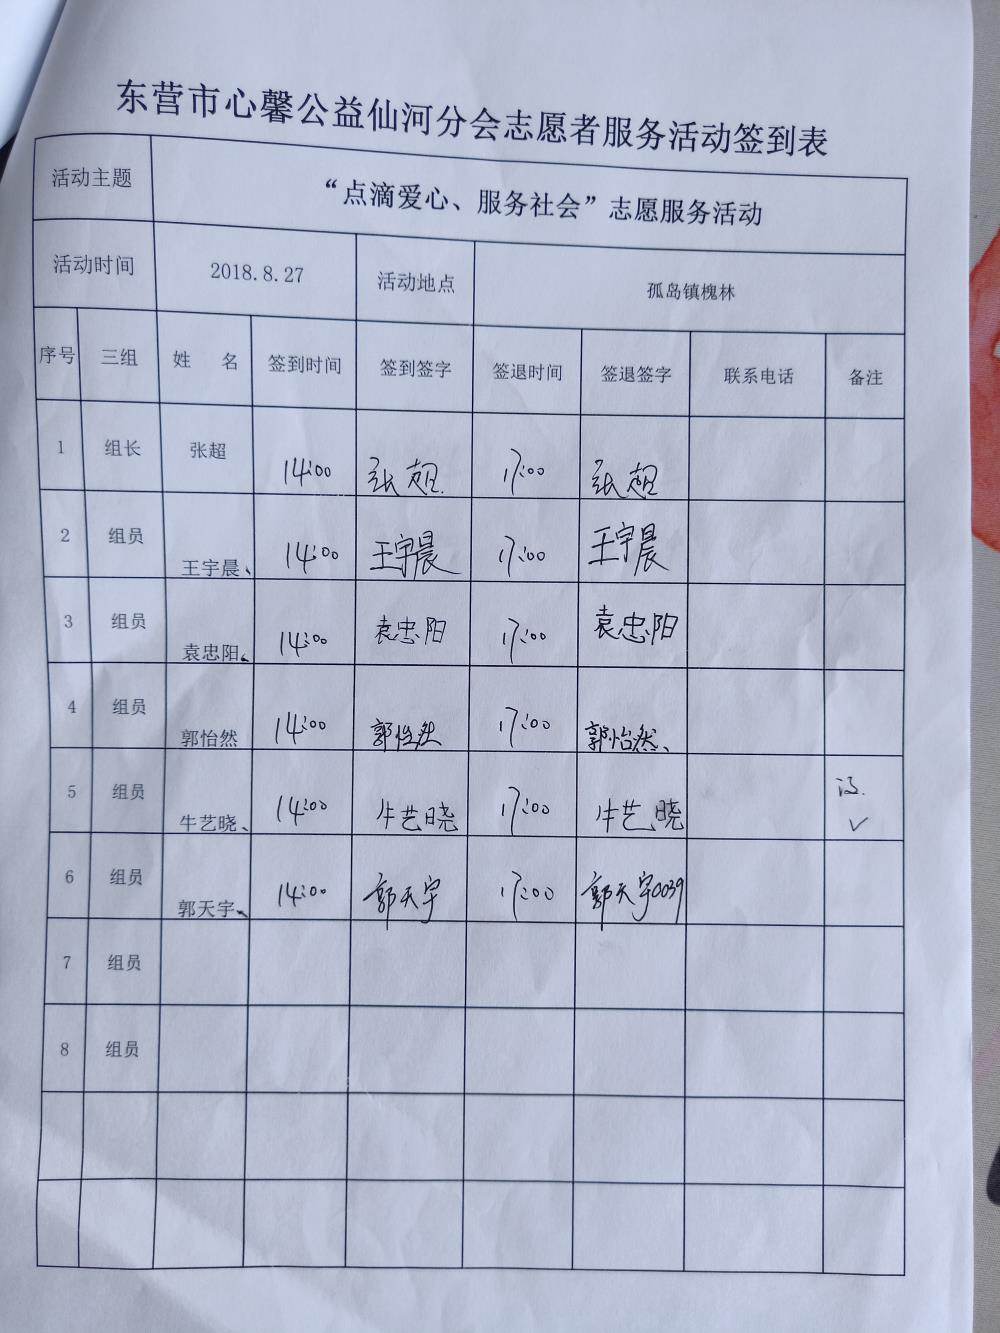 东营市心馨公益仙河分会志愿者服务活动签到表
活动主题 “点滴爱心、服务社会”志愿服务活动
活动时间 2018.8.27 活动地点 孤岛镇槐林
序号 三组 姓 名 签到时间 签到签字 签退时间 签退签字 联系电话 备注
1 组长 张超 14:00 张超 17:00 张超
2 组员 王宇晨、 14:00 王宇晨 17:00 王宇晨
3 组员 袁忠阳、 14:00 袁忠阳 17:00 袁忠阳
4 组员 郭怡然 14:00 郭怡然 17:00 郭怡然、
5 组员 牛艺晓、 14:00 牛艺晓 17:00 牛艺晓 ✓
6 组员 郭天宇、 14:00 郭天宇 17:00 郭天宇0039
7 组员
8 组员